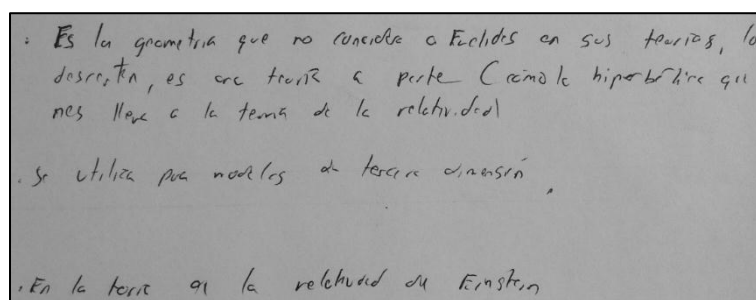 . Es la geometria que no considera a Euclides en sus teorias, lo
descartan, es una teoría a parte (como la hiperbólica que
nos lleva a la teoria de la relatividad
. Se utiliza para modelos de tercera dimensión.
. En la teoria de la relatividad de Einstein